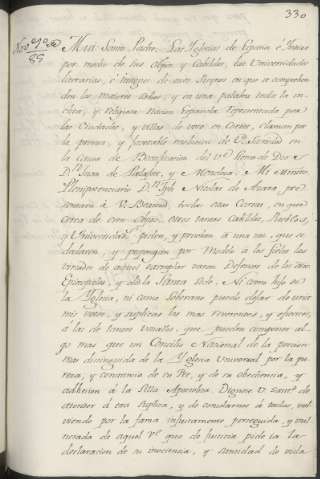 330
89
Mui Santo Padre. Las Yglesias de España è Indias
por medio de sus Obpos y Cabildos, las Universidades
literarias, è Cuerpos de estos Reynos en que se comprehen
den las maiores sillas; y en una palabra toda la in
clita, y religiosa Nacion Española representada por
las Ciudades, y villas de voto en Cortes, claman por
la pronta, y favorable resolucion de V. Santidad en
la Causa de Beatificacion del Ve Siervo de Dios
Dn Juan de Palafox, y Mendoza. Mi Ministro
Plenipotenciario Dn Jph Nicolas de Azara, pre
sentarà à V. Beatitud todas estas Cartas, en que
cerca de cien Obpos, otros tantos Cabildos, Pueblos,
y Universidades piden, y proclaman à una voz, que se
declaren, y propongan por modelo à los fieles las
virtudes de aquel exemplar varon Defensor de los dros
Episcopales, y de la Santa Sede. Asi como hijo de
la Yglesia, ni como soberano puedo dejar de unir
mis votos, y suplicas las mas reverentes, y eficaces,
à las de tantos vasallos, que pueden componer al
go mas que un Concilio Nacional de la porcion
mas distinguida de la Yglesia Universal por la pu
reza, y constancia de su Fee, y de su obediencia, y
adhesion à la Silla Apostolica. Dignese V. Santd de
atender à esta suplica, y de consolarnos à todos, vol
viendo por la fama injustamente perseguida, y vul
nerada de aquel Ve que de justicia pide la
declaracion de su inocencia, y santidad de vida